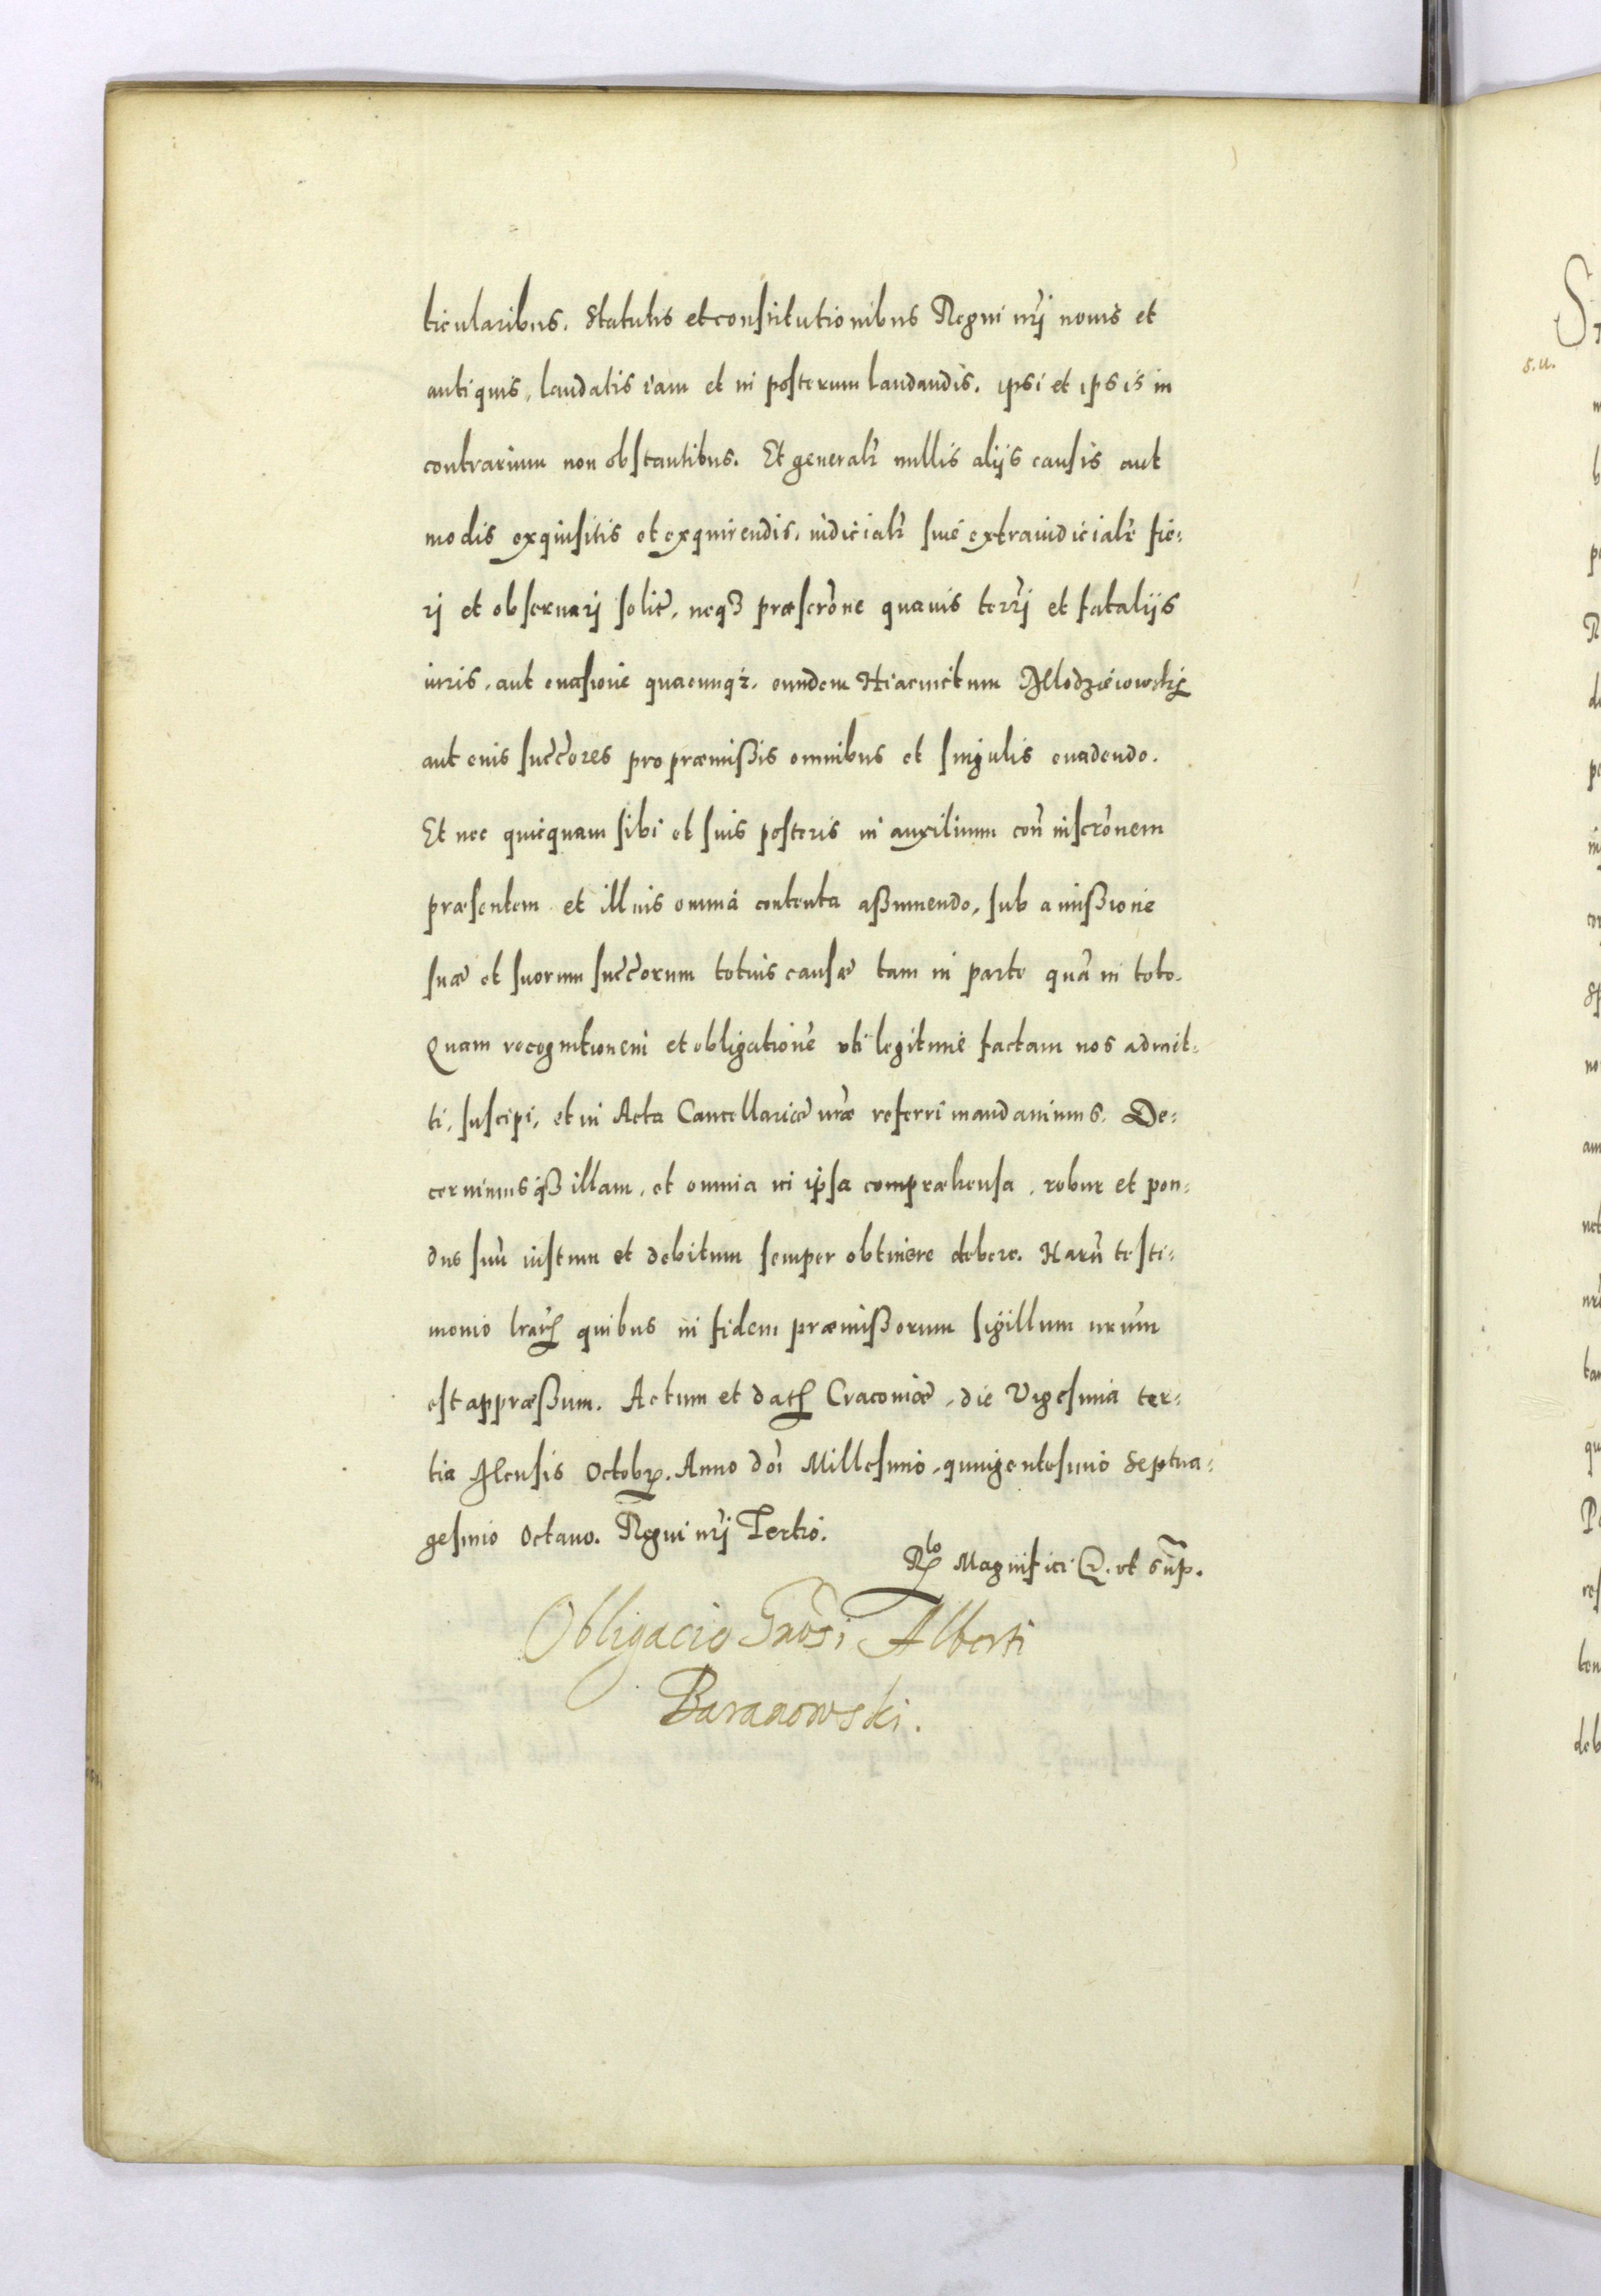 ticularibus. Statutis et constitutionibus Regni nr̃j nouis et
antiquis, laudatis iam et in posterum laudandis, ipsi et ipsis in
contrarium non obstantibus. Et generalr̃ nullis alijs causis aut
modis exquisitis et exquirendis, iudicialr̃ siue extraiudicialr̃ fie:
rj et obseruarj solit̃, neqꝫ præscr̃one quauis terr̃j et fatalijs
iuris, aut euasione quacunqꝫ. eundem Hiacinctum Mlodzieiowskj
aut eius succ̃ores pro præmißis omnibus et singulis euadendo.
Et nec quicquam sibi et suis posteris in auxilium con̄ inscr̃onem
præsentem et illius omnia contenta aßumendo, sub amißione
suæ et suorum succ̃orum totius causæ tam in parte quā in toto.
Quam recognitionem et obligationē uti legitime factam nos admit:
ti, suscipi, et in Acta Cancellariæ nr̃æ referri mandauimus. De:
cernimusqꝫ illam, et omnia in ipsa compræhensa, robur et pon:
dus suū iustum et debitum semper obtinere debere. Harū testi:
monio lrarꝫ quibus in fidem præmißorum sigillum nrūm
est appræßum. Actum et datꝫ Cracouiæ, die Vigesima ter:
tia Mensis Octobr̃. Anno dn̄i Millesimo, quingentesimo Septua:
gesimo Octauo. Regni nr̃j Tertio.
Rlo Magnifici &. ut sup̃.
Obligacio Gn̄osi Alberti
Baranowski.
S
s. u.